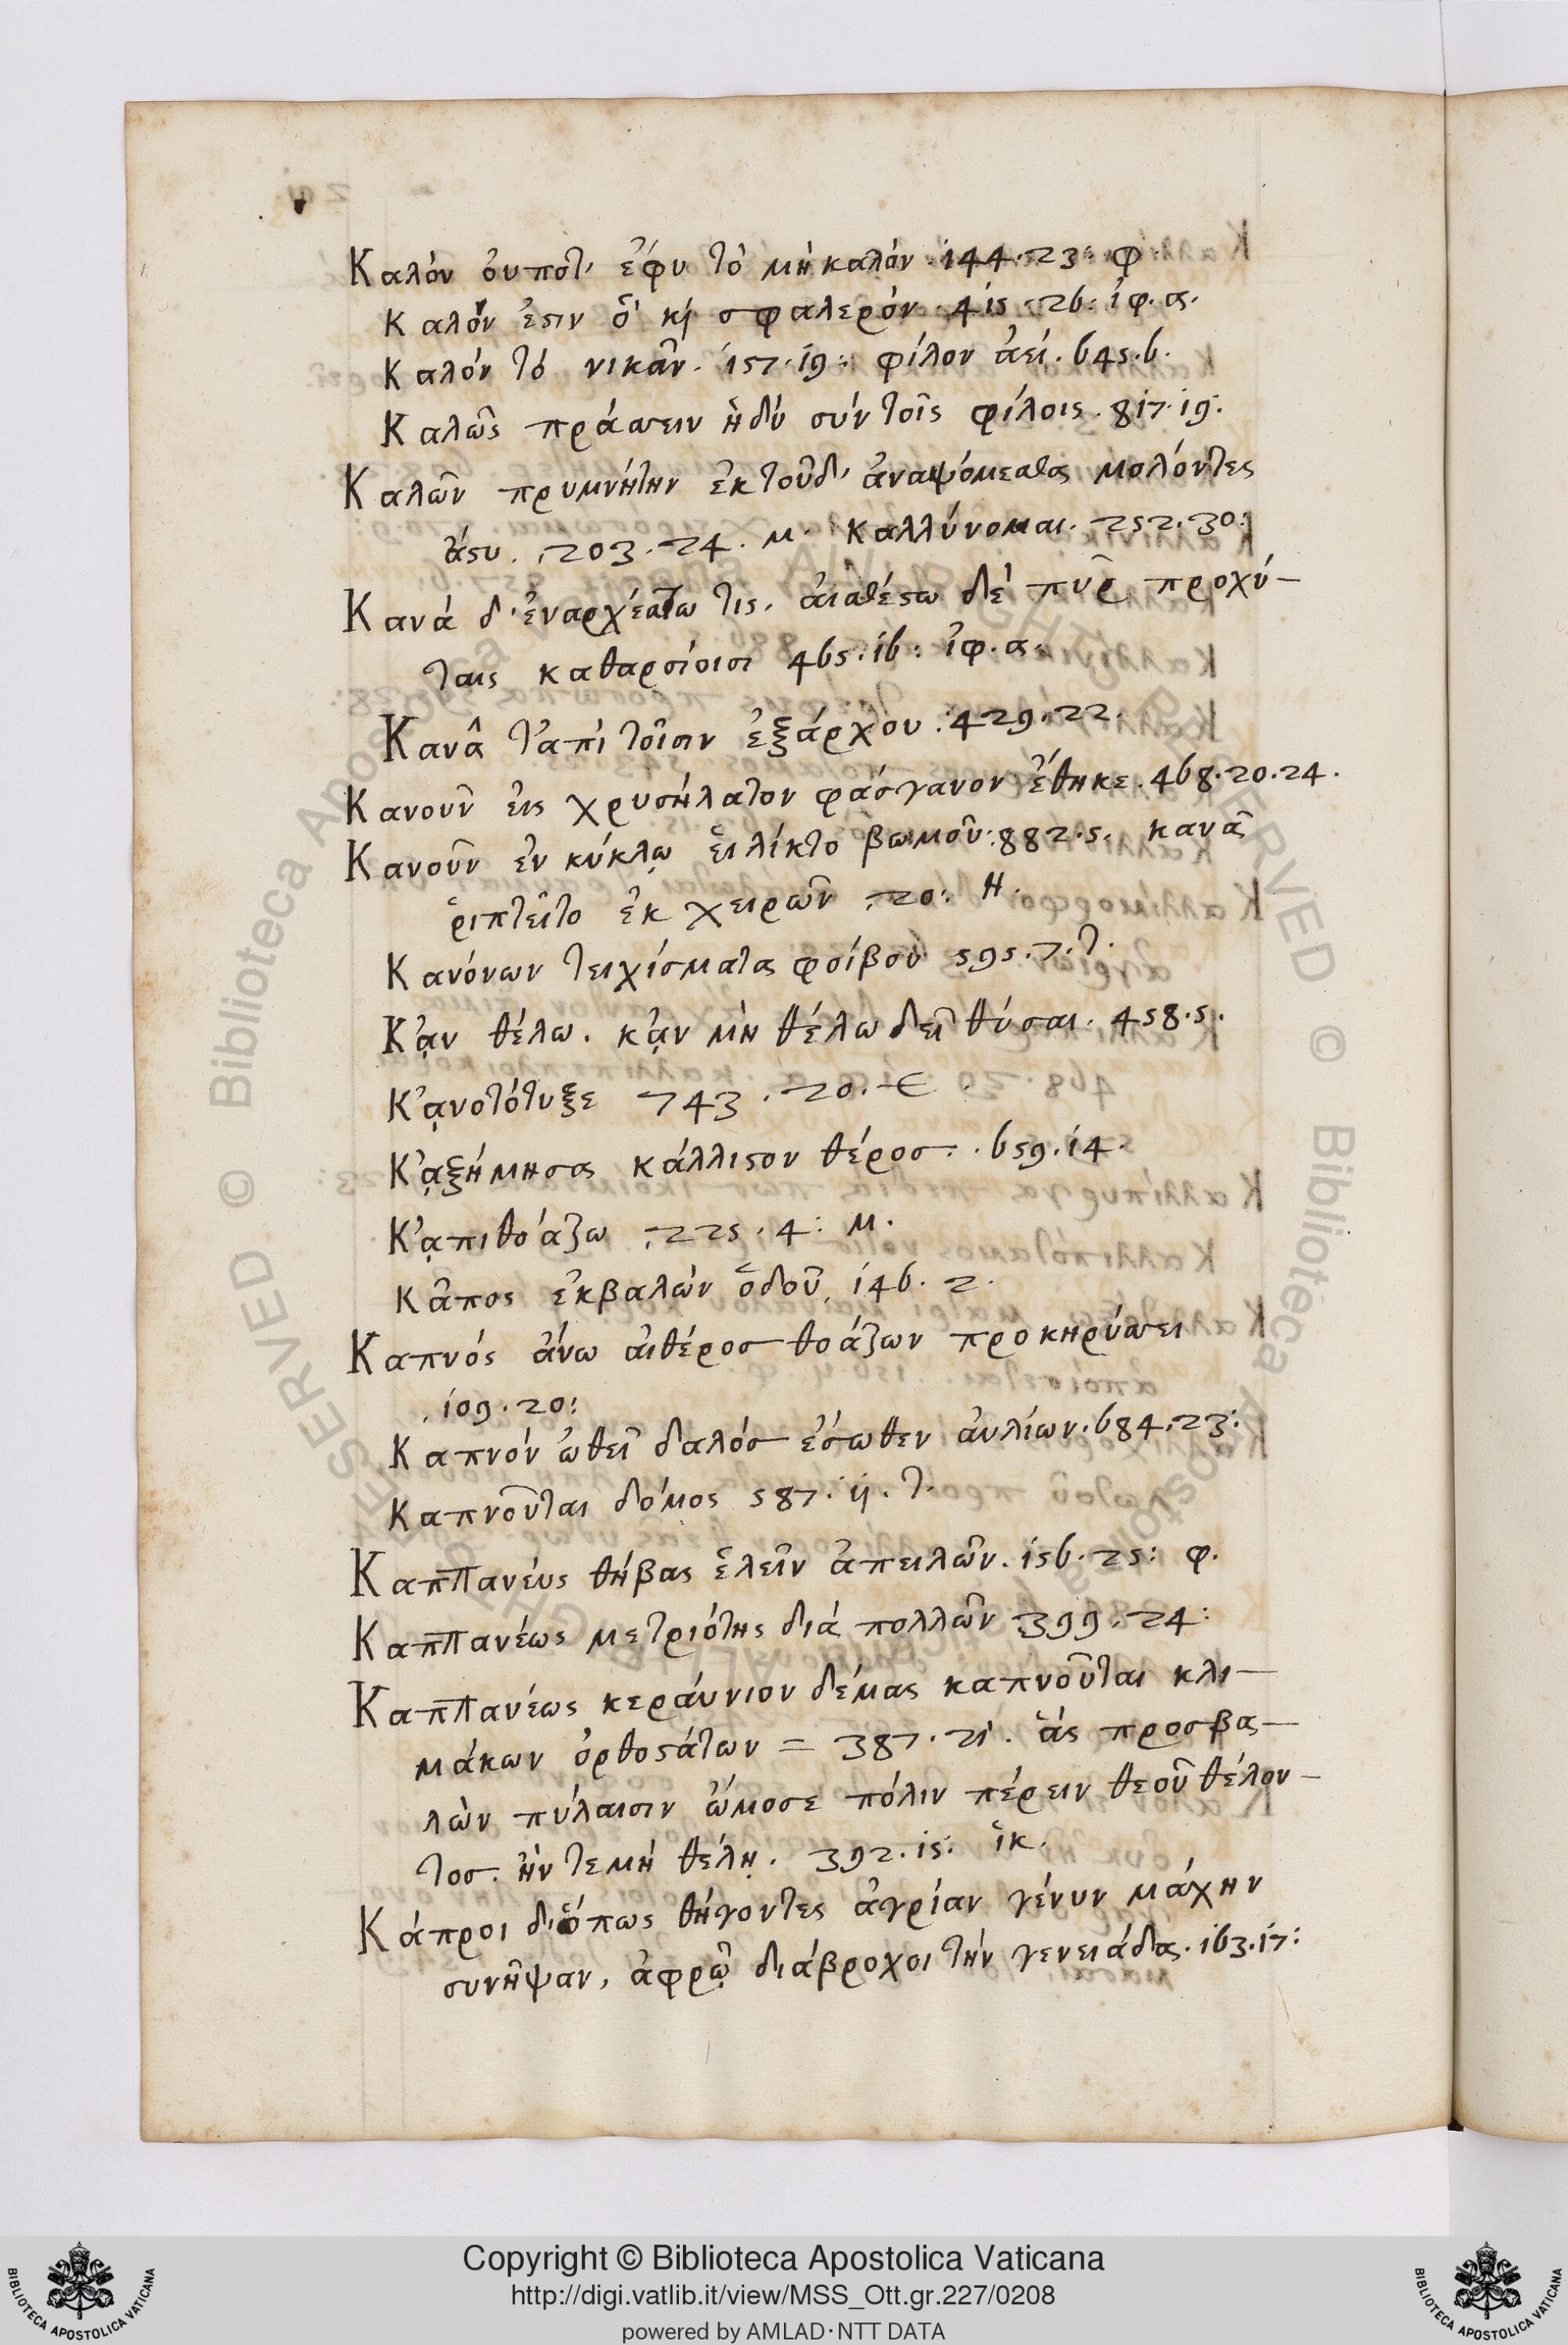 Καλὸν οὔποτ' ἔφυ τὸ μὴ καλόν. 144. 23: φ.
Καλόν ἐστιν ὃ καὶ σφαλερόν. 415. 26. ἰφ. α.
Καλόν τὸ νικᾶν. 157. 19: φίλον ἀεί. 645. 6.
Καλῶς πράσσειν ἡδὺ σύν τοῖς φίλοις. 817. 19.
Καλῶν πρυμνήτην ἐκ τοῦδ' ἀναψόμεσθα μολόντες
ἄστυ. 203. 24. μ. καλλύνομαι. 252. 30:
Κανά δ' ἐναρχέσθω τις. αἰθέσθω δέ πῦρ προχύ-
ταις καθαρσίοισι 465. 16: ἰφ. α.
Κανᾶ τἀπὶ τοῖσιν ἐξάρχου: 429. 22.
Κανοῦν εἰς χρυσήλατον φάσγανον ἔθηκε. 468. 20. 24.
Κανοῦν ἐν κύκλῳ εἱλίκτο βωμοῦ: 882. 5. κανᾶ
ῥιπτεῖτο ἐκ χειρῶν 20: Η.
Κανόνων τειχίσματα φοίβου 595. 7. τ.
Κᾂν θέλω. κᾂν μὴ θέλω δεῖ θῦσαι. 458. 5.
Κᾀνοτότυξε 743. 20. Ε
Κᾀξήμησα κάλλιστον θέρος. 659. 14.
Κᾀπιθοάζω 225. 4: μ.
Κᾆπος ἐκβαλὼν ὁδοῦ 146. 2.
Καπνός ἄνω αἰθέρος θοάζων προκηρύσσει
109. 20:
Καπνὸν ὠθεῖ δαλὸς ἔσωθεν αὐλίων. 684. 23:
Καπνοῦται δόμος 587. 11. τ.
Καππανέυς θήβας ἑλεῖν ἀπειλῶν. 156. 25: φ.
Καππανέως μετριότης διά πολλῶν 399. 24:
Καππανέως κεράυνιον δέμας καπνοῦται κλι-
μάκων ὀρθοστάτων = 387. 21. ἃς προσβα-
λὼν πύλαισιν ὤμοσε πόλιν πέρσειν θεοῦ θέλον-
τος. ἤν τε μή θέλῃ. 392. 15: ἱκ.
Κάπροι δ' ὅπως θήγοντες ἀγρίαν γένυν μάχην
συνῆψαν, ἀφρῷ διάβροχοι τὴν γενειάδα. 163. 17:
Copyright © Biblioteca Apostolica Vaticana
http://digi.vatlib.it/view/MSS_Ott.gr.227/0208
powered by AMLAD·NTT DATA